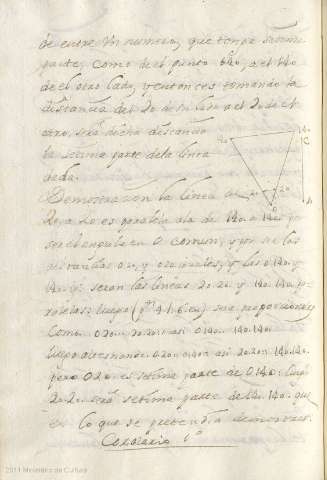 de entre Un numero, que tenga setima
parte, como de el punto 140, a el 140
de el otro lado, y entonces tomando la
distancia del 20 de un lado a el 20 de el
otro, será dicha distancia
la setima parte de la linea
dada.
140 140
C
20 20
O A
Demostracion la linea
20, a 20 es paralela a la de 140 a 140
ser el angulo en O comun, y por
y los 0.140 y
140. seran las lineas 20.20 y 140.140. pa-
ralelas: luego (4. l. 6. eu) son proporcionales
como 0.20. 20.20. asi 0.140. 140.140.
luego alternando 0.20. 0.140. asi 20.20. 140.140.
pero 0.20. es setima parte de 0.140. luego
20.20. será setima parte de 140.140. que
es lo que se pretendia demostrar.
Corolario 1º
2011 Ministerio de Cultura